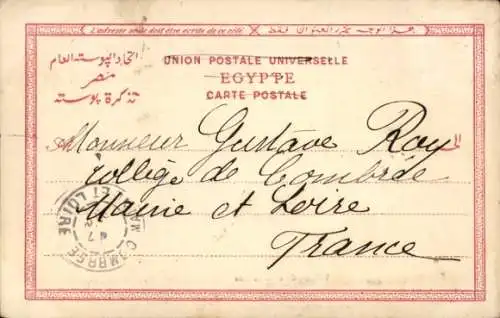 L'adresse seule doit être écrite de ce côté
هذا الوجه محرر العنوان فقط
اتحاد البوسته العام
مصر
تذكرة بوسته
UNION POSTALE UNIVERSELLE
EGYPTE
CARTE POSTALE
Monsieur Gustave Roy
collège de Combrée
Maine et Loire
France
ET LOIRE